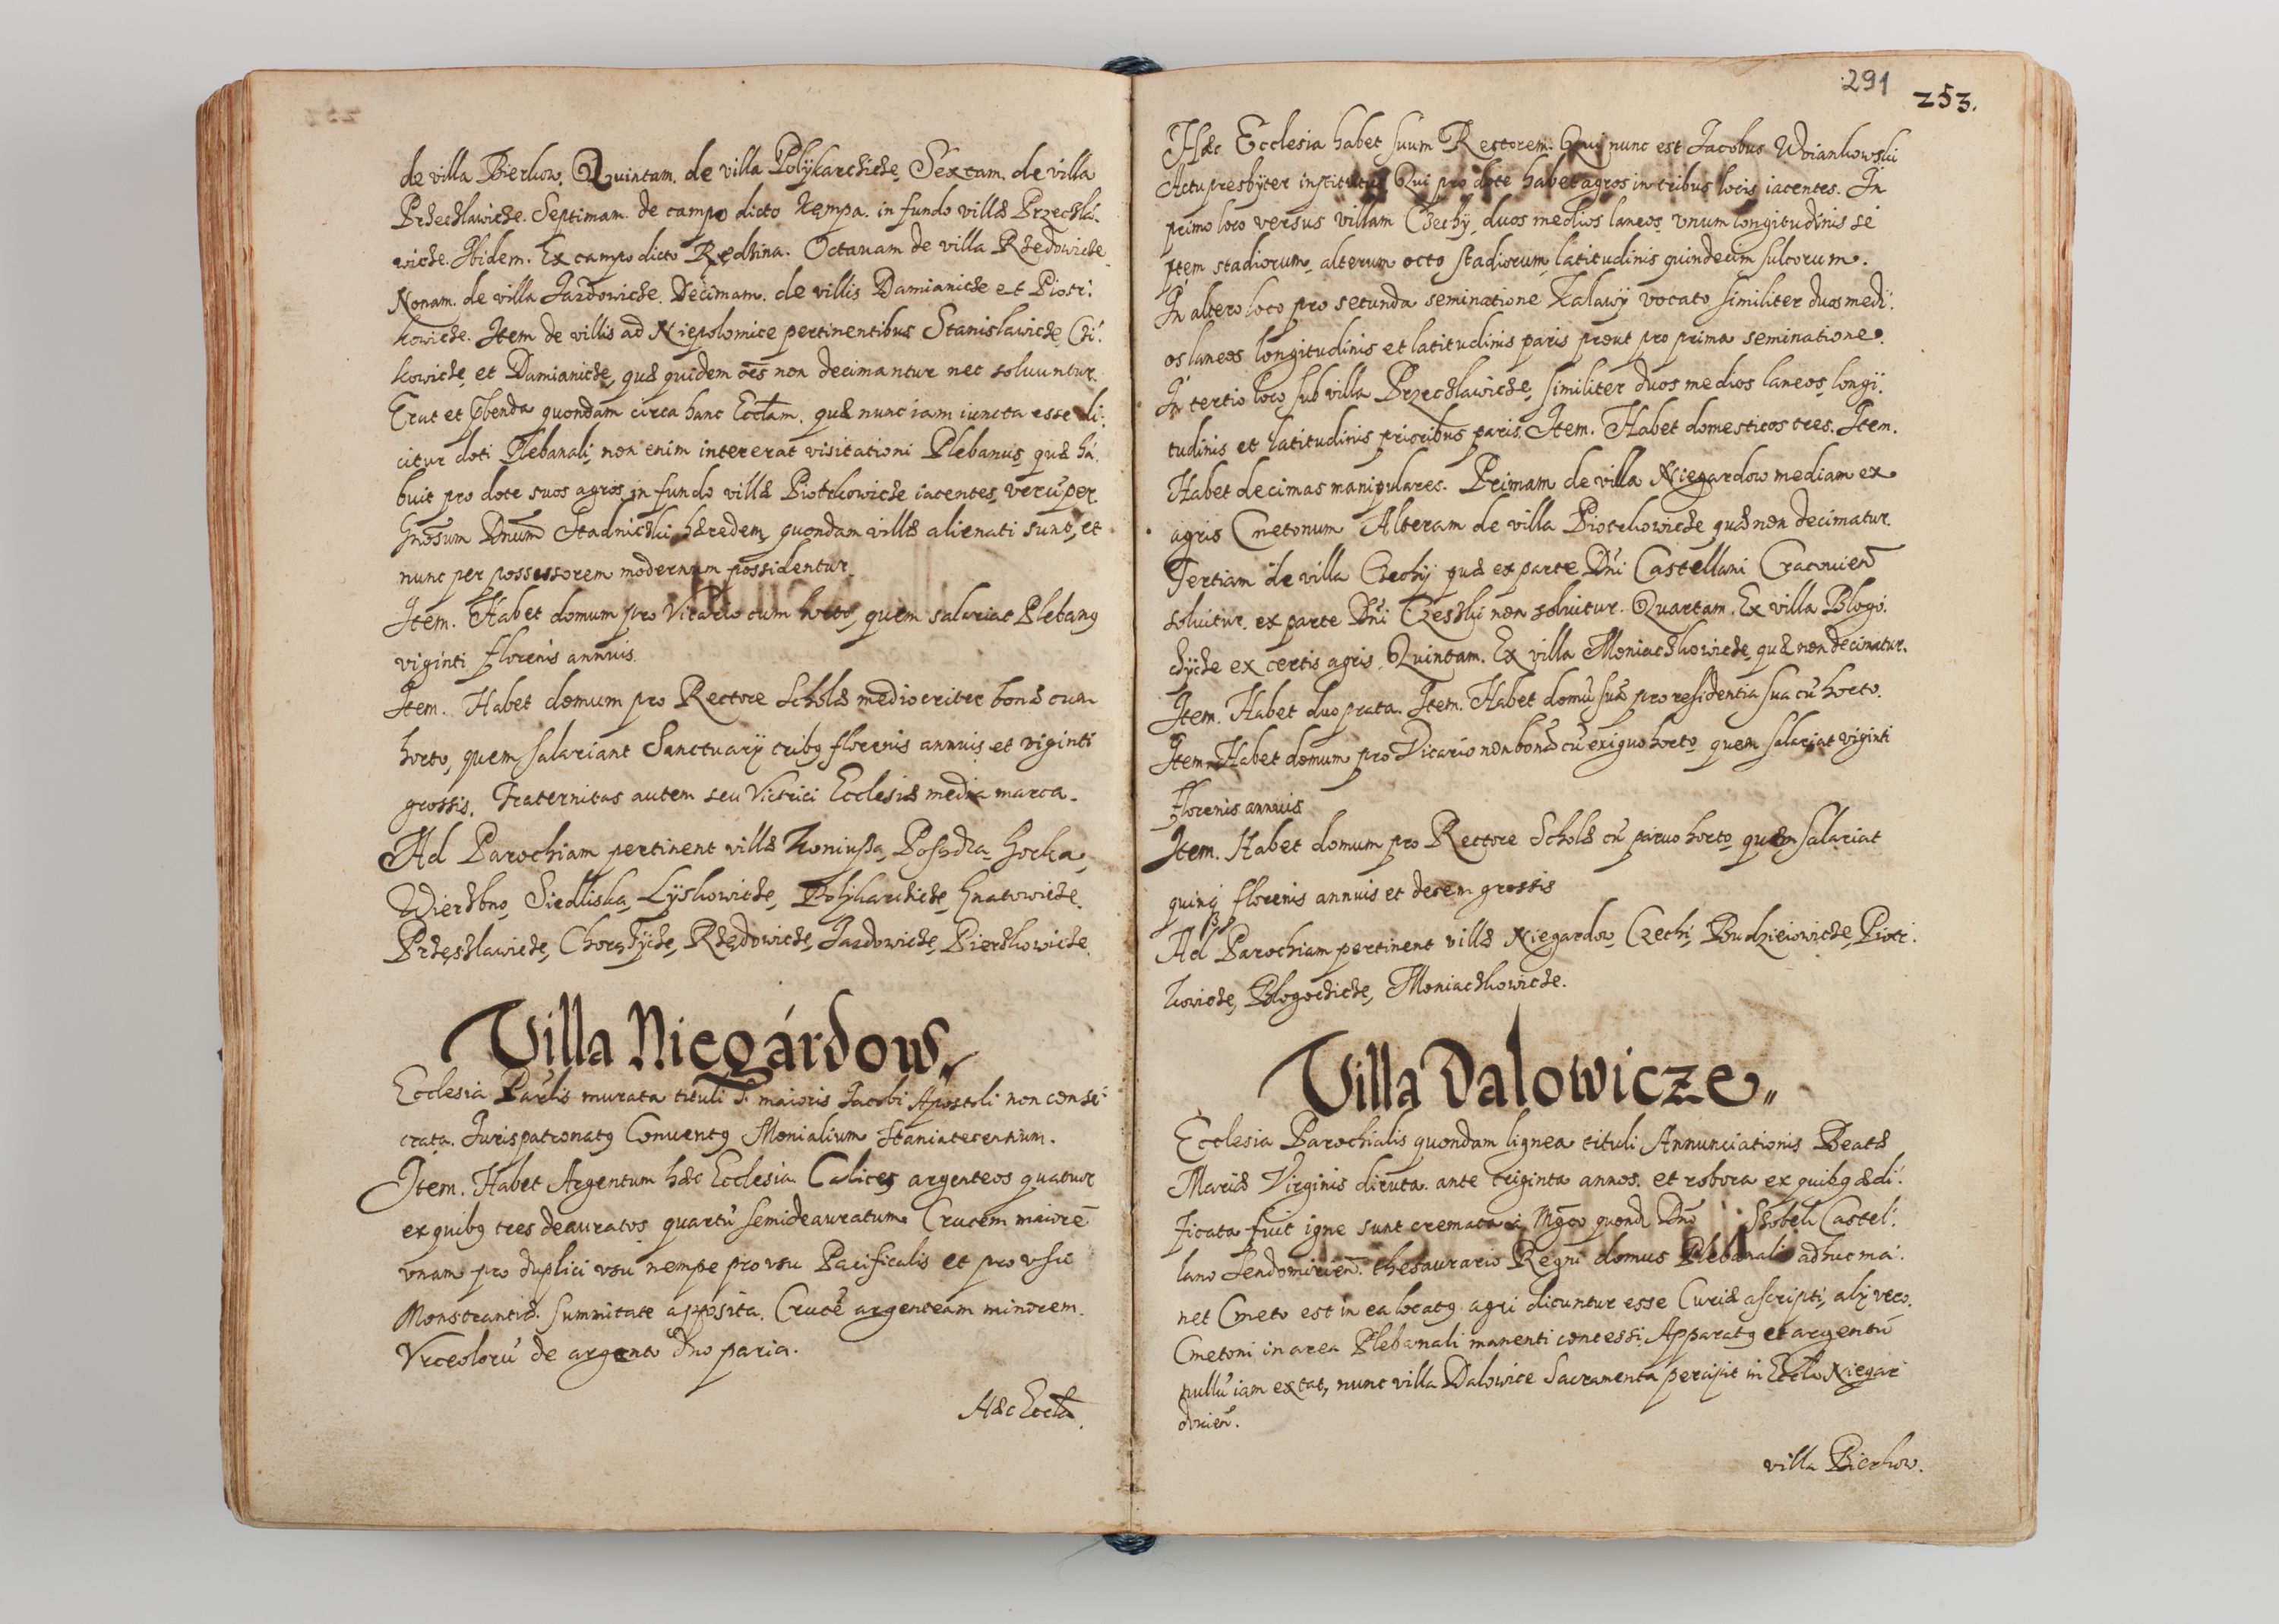 de villa Bierkow. Quintam. de villa Polykarcziche, Sextam. de villa
Przeczlawicze. Septimam. de campo dicto Kempa. in fundo villæ Przeczla-
wicze. Ibidem. Ex campo dicto Rędzina. Octauam de villa Rzedowicze
Nonam. de villa Jazdowicze. Decimam. de villis Damianicze et Piotr-
kowicze. Item de villis ad Niepolomice pertinentibus Stanislawicze, Ci-
kowicze, et Damianicze, quæ quidem oẽs non decimantur nec soluuntur.
Erat et Pbenda quondam circa hanc Eccłam. quæ nunc iam iuncta esse di-
citur doti Plebanali, non enim intererat visitationi Plebanus, quæ ha-
buit pro dote suos agros in fundo villæ Piotrkowicze iacentes, verũ per
Gnõsum Dnum Stadniczki hæredem, quondam villæ alienati sunt, et
nunc per possessorem modernum possidentur.
Item. Habet domum pro Vicario cum horto, quem salariat Plebanꝯ
viginti florenis annuis.
Item. Habet domum pro Rectore Scholæ mediocriter bonã cum
horto, quem salariant Sanctuarÿ tribꝯ florenis annuis et viginti
grossis. Fraternitas autem seu Vitrici Ecclesiæ media marca.
Ad Parochiam pertinent villæ Koniussa, Posadza, Gorka,
Wierzbno, Siedliska, Lyskowicze, Polykarcicze, Gnatowicze.
Przeslawicze, Chorążÿcze, Rzędowicze, Jazdowicze, Bierkowicze.
Villa Niegárdow
Ecclesia Parłis murata tituli S. maioris Jacobi Apostoli non conse-
crata. Jurispatronatꝯ Conuentꝯ Monialium Staniatecensium.
Item. Habet Argentum hæc Ecclesia Calices argenteos quatuor
ex quibꝯ tres deauratos quartũ semideauratum. Crucem maiorẽ
vnam pro duplici vsu nempe pro vsu Pacificalis et pro vsu
Monstrantiæ. summitate apposita. Crucẽ argenteam minorem.
Vrceolorũ de argento duo paria.
Hæc Eccła
291
253.
Hæc Ecclesia habet suum Rectorem. Qui nunc est Jacobus Woiankowski
Actu presbÿter institutus Qui pro dote habet agros in tribus locis iacentes. In
primo loco versus villam Czechÿ duos medios laneos, vnum longitudinis se
ptem stadiorum, alterum octo stadiorum latitudinis quindecim sulcorum.
In altero loco pro secunda seminatione Kalawÿ vocato similiter duos medi-
os laneos longitudinis et latitudinis paris prout pro prima seminatione.
In tertio loco sub villa Przeczlawicze, similiter duos medios laneos, longi-
tudinis et latitudinis prioribus paris. Item. Habet domesticos tres. Item.
Habet decimas manipulares. Primam de villa Niegardow mediam ex
agris Cmetonum Alteram de villa Piotrkowicze quæ non decimatur.
Tertiam de villa Czechÿ quæ ex parte Dñi Castellani Cracouieñ
soluitur. ex parte Dñi Czeski non soluitur. Quartam. Ex villa Blogo-
czÿcze ex certis agris. Quintam. Ex villa Moniaczkowicze, quæ non decimatur.
Item. Habet duo prata. Item. Habet domũ suã pro residentia sua cũ horto.
Item. Habet domum pro Vicario non bonã cũ exiguo horto quem salariat viginti
florenis annuis
Item. Habet domum pro Rectore Scholæ cũ paruo horto quem salariat
quinqꝫ florenis annuis et decem grossis
Ad Parochiam pertinent villæ Niegardow, Czechi, Budzieiowicze, Piotr-
kowicze, Blogocicze, Moniaczkowicze.
Villa Dalowicze
Ecclesia Parochialis quondam lignea tituli Annunciationis Beatæ
Mariæ Virginis diruta. ante triginta annos. et robora ex quibꝯ ædi-
ficata fuit igne sunt cremata à Mgco quond Dño Szobek Castel-
lano Sendomirieñ. thesaurario Regni domus Plebanalis adhuc ma-
net Cmeto est in ea locatꝯ agri dicuntur esse Curiæ ascripti, alÿ vero
Cmetoni in area Plebanali manenti concessi, Apparatꝯ et argentũ
nullũ iam extat, nunc villa Dalowice Sacramenta percipit in Eccła Niegar-
douieñ.
villa Bierkow.